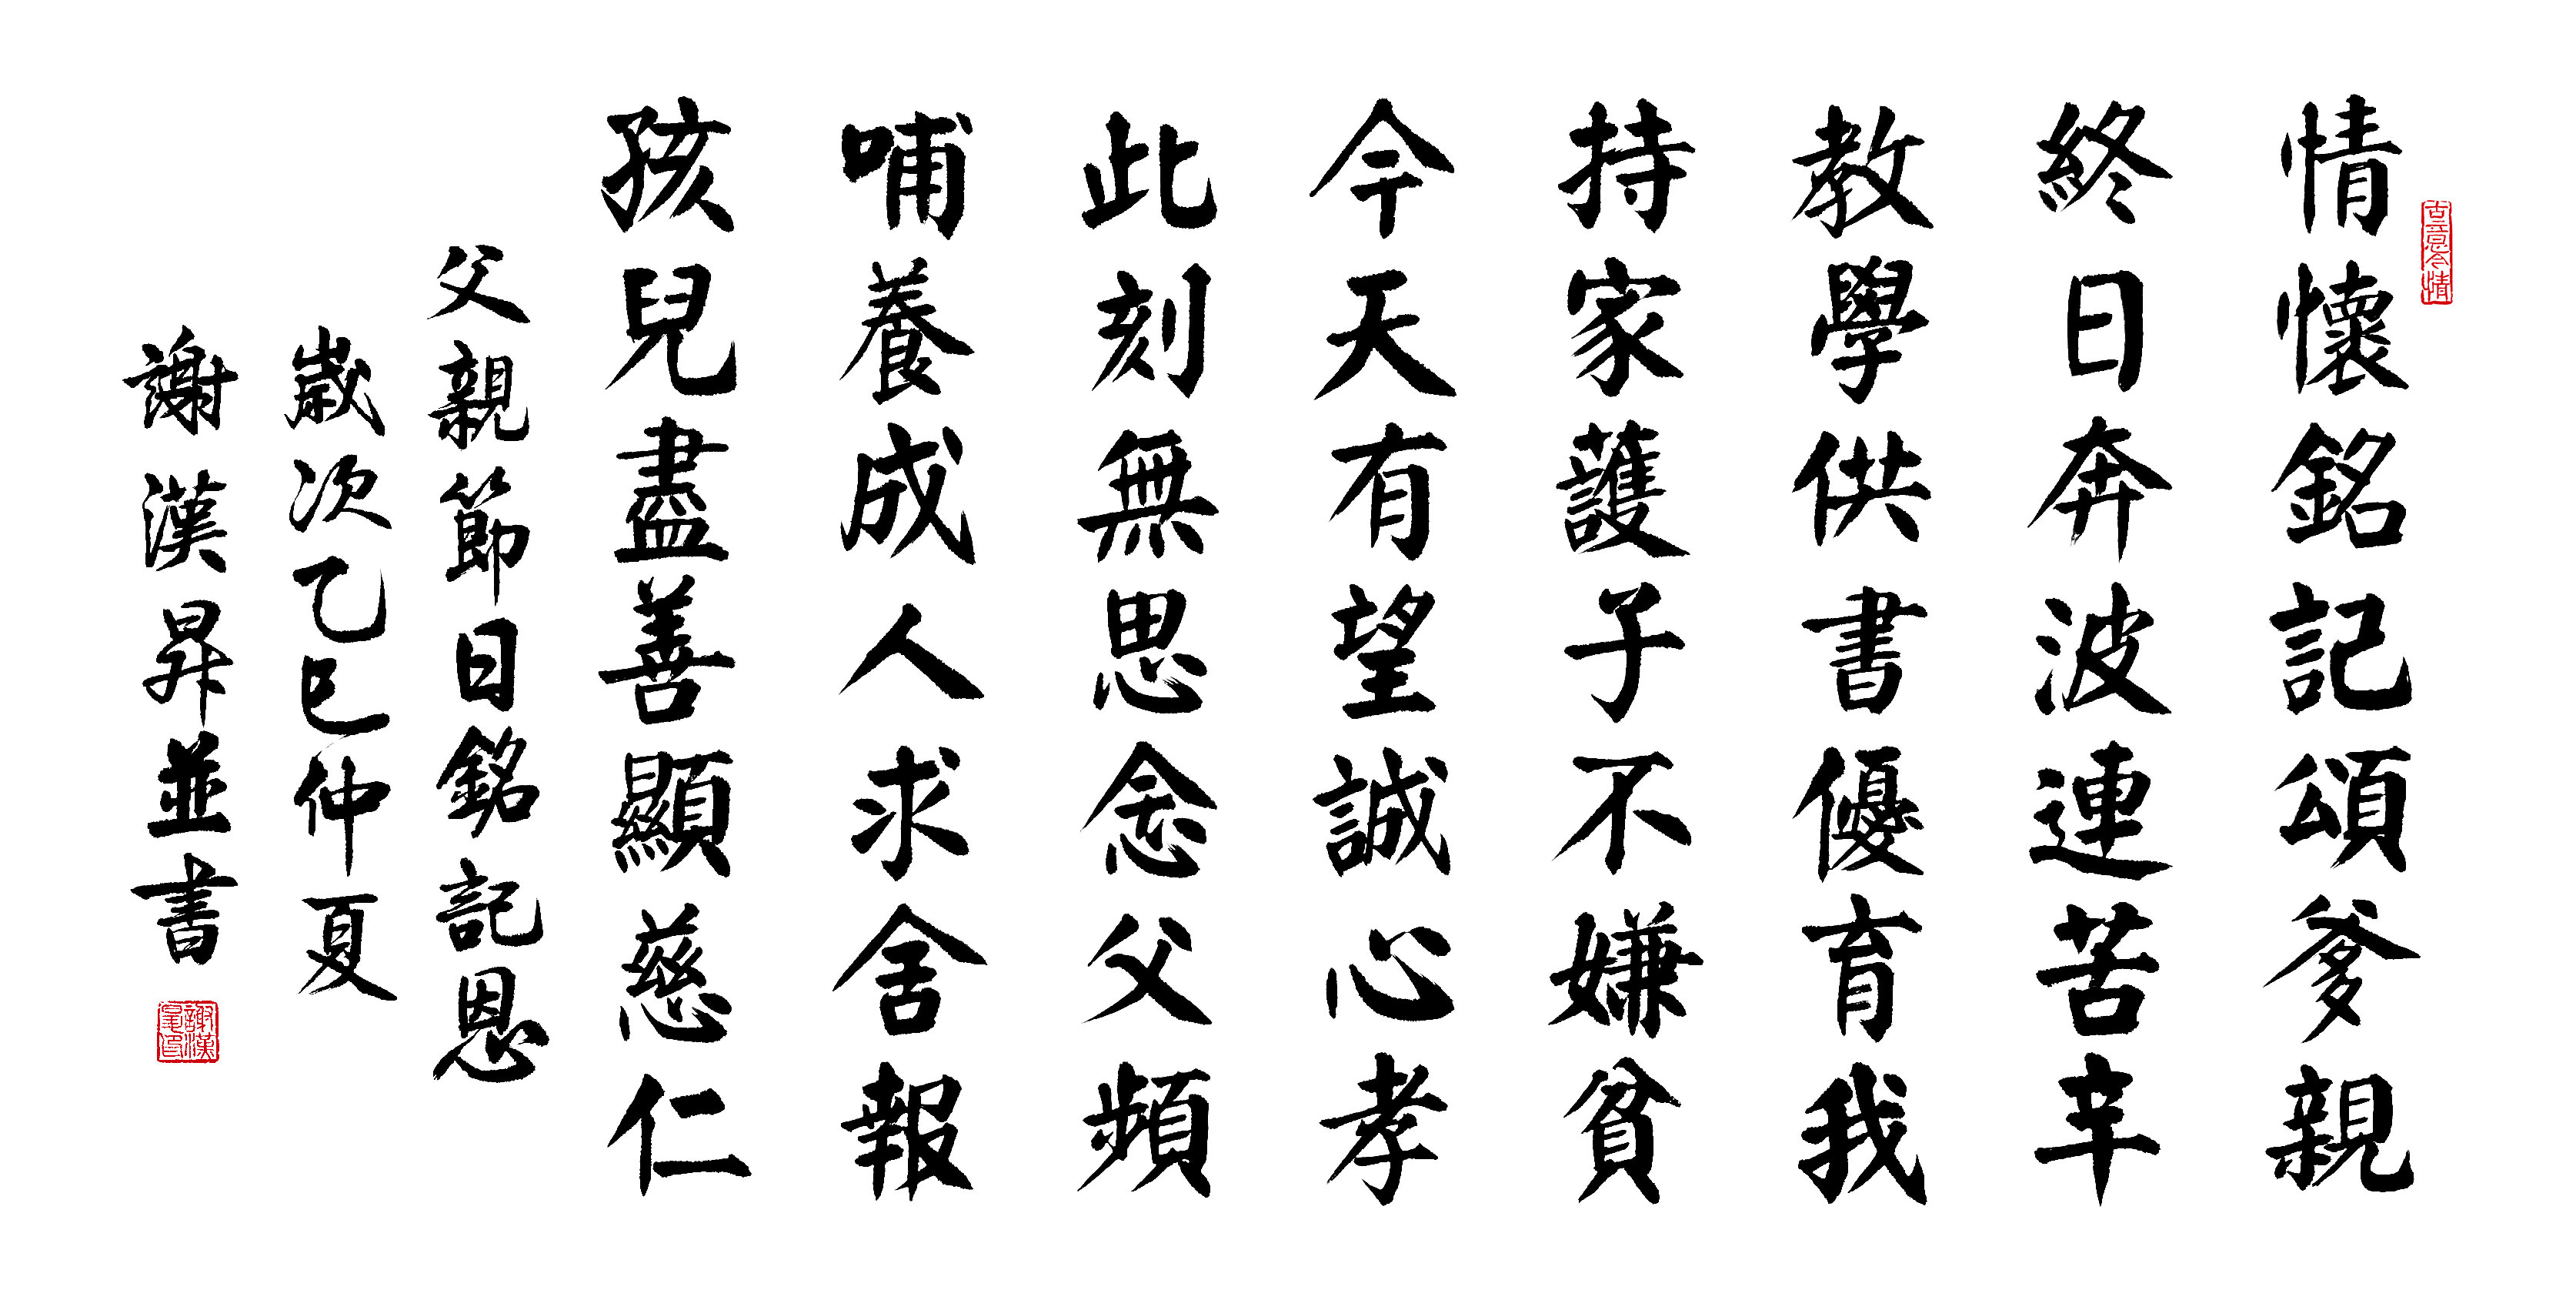 古意今情
情懷銘記頌爹親
終日奔波連苦辛
教學供書優育我
持家護子不嫌貧
今天有望誠心孝
此刻無思念父頻
哺養成人求舍報
孩兒盡善顯慈仁
父親節日銘記恩
歲次乙巳仲夏
謝漢昇並書